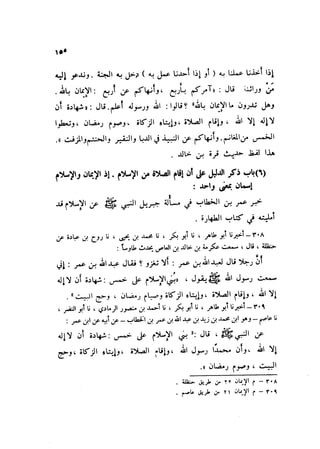 ١٥٥
إذا أخذنا به عملنا ( أو إذا أحدنا عمل به ) دخل به الجنة . وندعو إليه
مَنْ وراءنا . قال : «آمركم بأربع ، وأنهاكم عن أربع : الإيمان بالله .
وهل تدرون ما الإيمان بالله» ؟ قالوا : الله ورسوله أعلم . قال : «شهادة أن
لا إله إلا الله ، وإقام الصلاة ، وإيتاء الزكاة ، وصوم رمضان ، وتعطوا
الخمس من المغانم . وأنهاكم عن النبيذ في الدبا والنقير والحنتم والمزفت» .
هذا لفظ حديث قرة بن خالد .
(٦) باب ذكر الدليل على أن إقام الصلاة من الإسلام . إذ الإيمان والإسلام
إسمان بمعنى واحد :
خبر عمر بن الخطاب في مسألة جبريل النبي ﷺ عن الإسلام قد
أمليته في كتاب الطهارة .
٣٠٨ – أخبرنا أبو طاهر ، نا أبو بكر ، نا محمد بن يحيى ، نا روح بن عبادة عن
حنظلة ، قال ، سمعت عكرمة بن خالد بن العاص يحدث طاوساً :
أنّ رجلاً قال لعبد الله بن عمر : ألا تغزو ؟ فقال عبد الله بن عمر : إني
سمعت رسول الله ﷺ يقول ، «بُني الإسلام على خمس : شهادة أن لا إله
إلا الله ، وإقام الصلاة ، وإيتاء الزكاة وصيام رمضان ، وحج البيت» .
٣٠٩ – أخبرنا أبو طاهر ، نا أبو بكر ، نا أحمد بن منصور الرمادي ، نا أبو النضر ،
نا عاصم – وهو ابن محمد بن زيد بن عبد الله بن عمر بن الخطاب – عن أبيه عن ابن عمر :
عن النبي ﷺ ، قال : «بني الإسلام على خمس : شهادة أن لا إله
إلا الله ، وأن محمداً رسول الله ، وإقام الصلاة ، وإيتاء الزكاة ، وحج
البيت ، وصوم رمضان» .
٣٠٨ – م الإيمان ٢٥ من طريق حنظلة .
٣٠٩ – م الإيمان ٢١ من طريق عاصم .